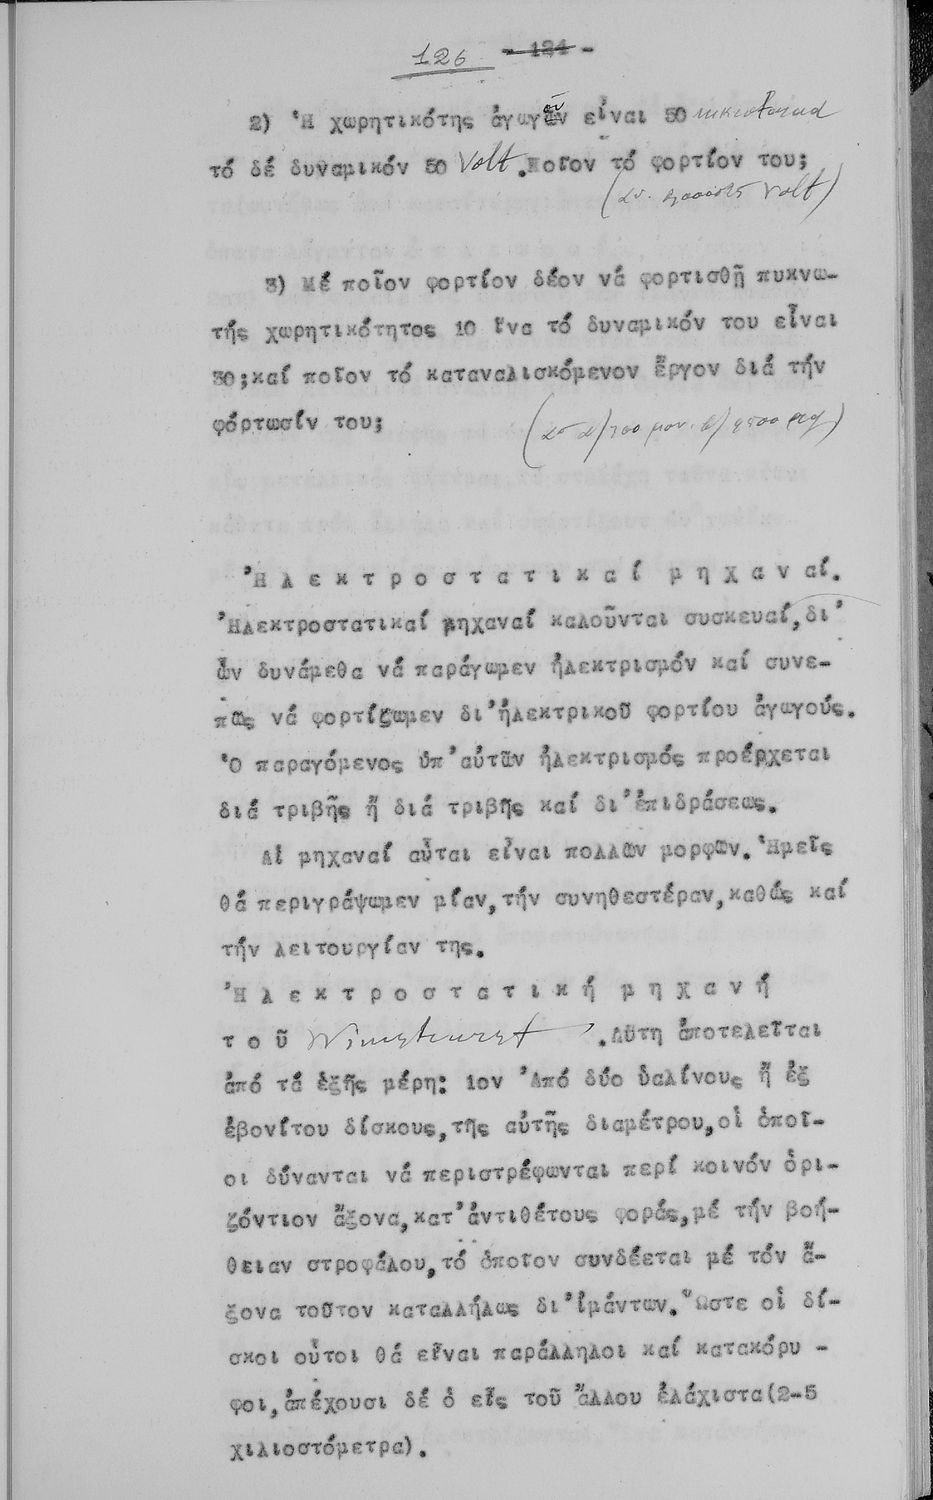 126 - 124 -
2) Ἡ χωρητικότης ἀγωγοῦ εἶναι 50 mikrofarad
τό δέ δυναμικόν 50 Volt. Ποῖον τό φορτίον του;
Volt)
3) Μέ ποῖον φορτίον δέον νά φορτισθῇ πυκνω-
τής χωρητικότητος 10 ἵνα τό δυναμικόν του εἶναι
30; καί ποῖον τό καταναλισκόμενον ἔργον διά τήν
φόρτωσίν του;
Ἠλεκτροστατικαί μηχαναί.
Ἠλεκτροστατικαί μηχαναί καλοῦνται συσκευαί, δι'
ὧν δυνάμεθα νά παράγωμεν ἠλεκτρισμόν καί συνε-
πῶς νά φορτίζωμεν δι'ἠλεκτρικοῦ φορτίου ἀγωγούς.
Ὁ παραγόμενος ὑπ'αὐτῶν ἠλεκτρισμός προέρχεται
διά τριβῆς ἤ διά τριβῆς καί δι'ἐπιδράσεως.
Αἱ μηχαναί αὗται εἶναι πολλῶν μορφῶν. Ἡμεῖς
θά περιγράψωμεν μίαν, τήν συνηθεστέραν, καθώς καί
τήν λειτουργίαν της.
Ἠλεκτροστατική μηχανή
τοῦ Wimshurst. Αὕτη ἀποτελεῖται
ἀπό τά ἑξῆς μέρη: 1ον Ἀπό δύο ὑαλίνους ἤ ἐξ
ἐβονίτου δίσκους, τῆς αὐτῆς διαμέτρου, οἱ ὁποῖ-
οι δύνανται νά περιστρέφωνται περί κοινόν ὁρι-
ζόντιον ἄξονα, κατ'ἀντιθέτους φοράς, μέ τήν βοή-
θειαν στροφάλου, τό ὁποῖον συνδέεται μέ τόν ἄ-
ξονα τοῦτον καταλλήλως δι'ἱμάντων. Ὥστε οἱ δί-
σκοι οὗτοι θά εἶναι παράλληλοι καί κατακόρυ -
φοι, ἀπέχουσι δέ ὁ εἷς τοῦ ἄλλου ἐλάχιστα(2-5
χιλιοστόμετρα).